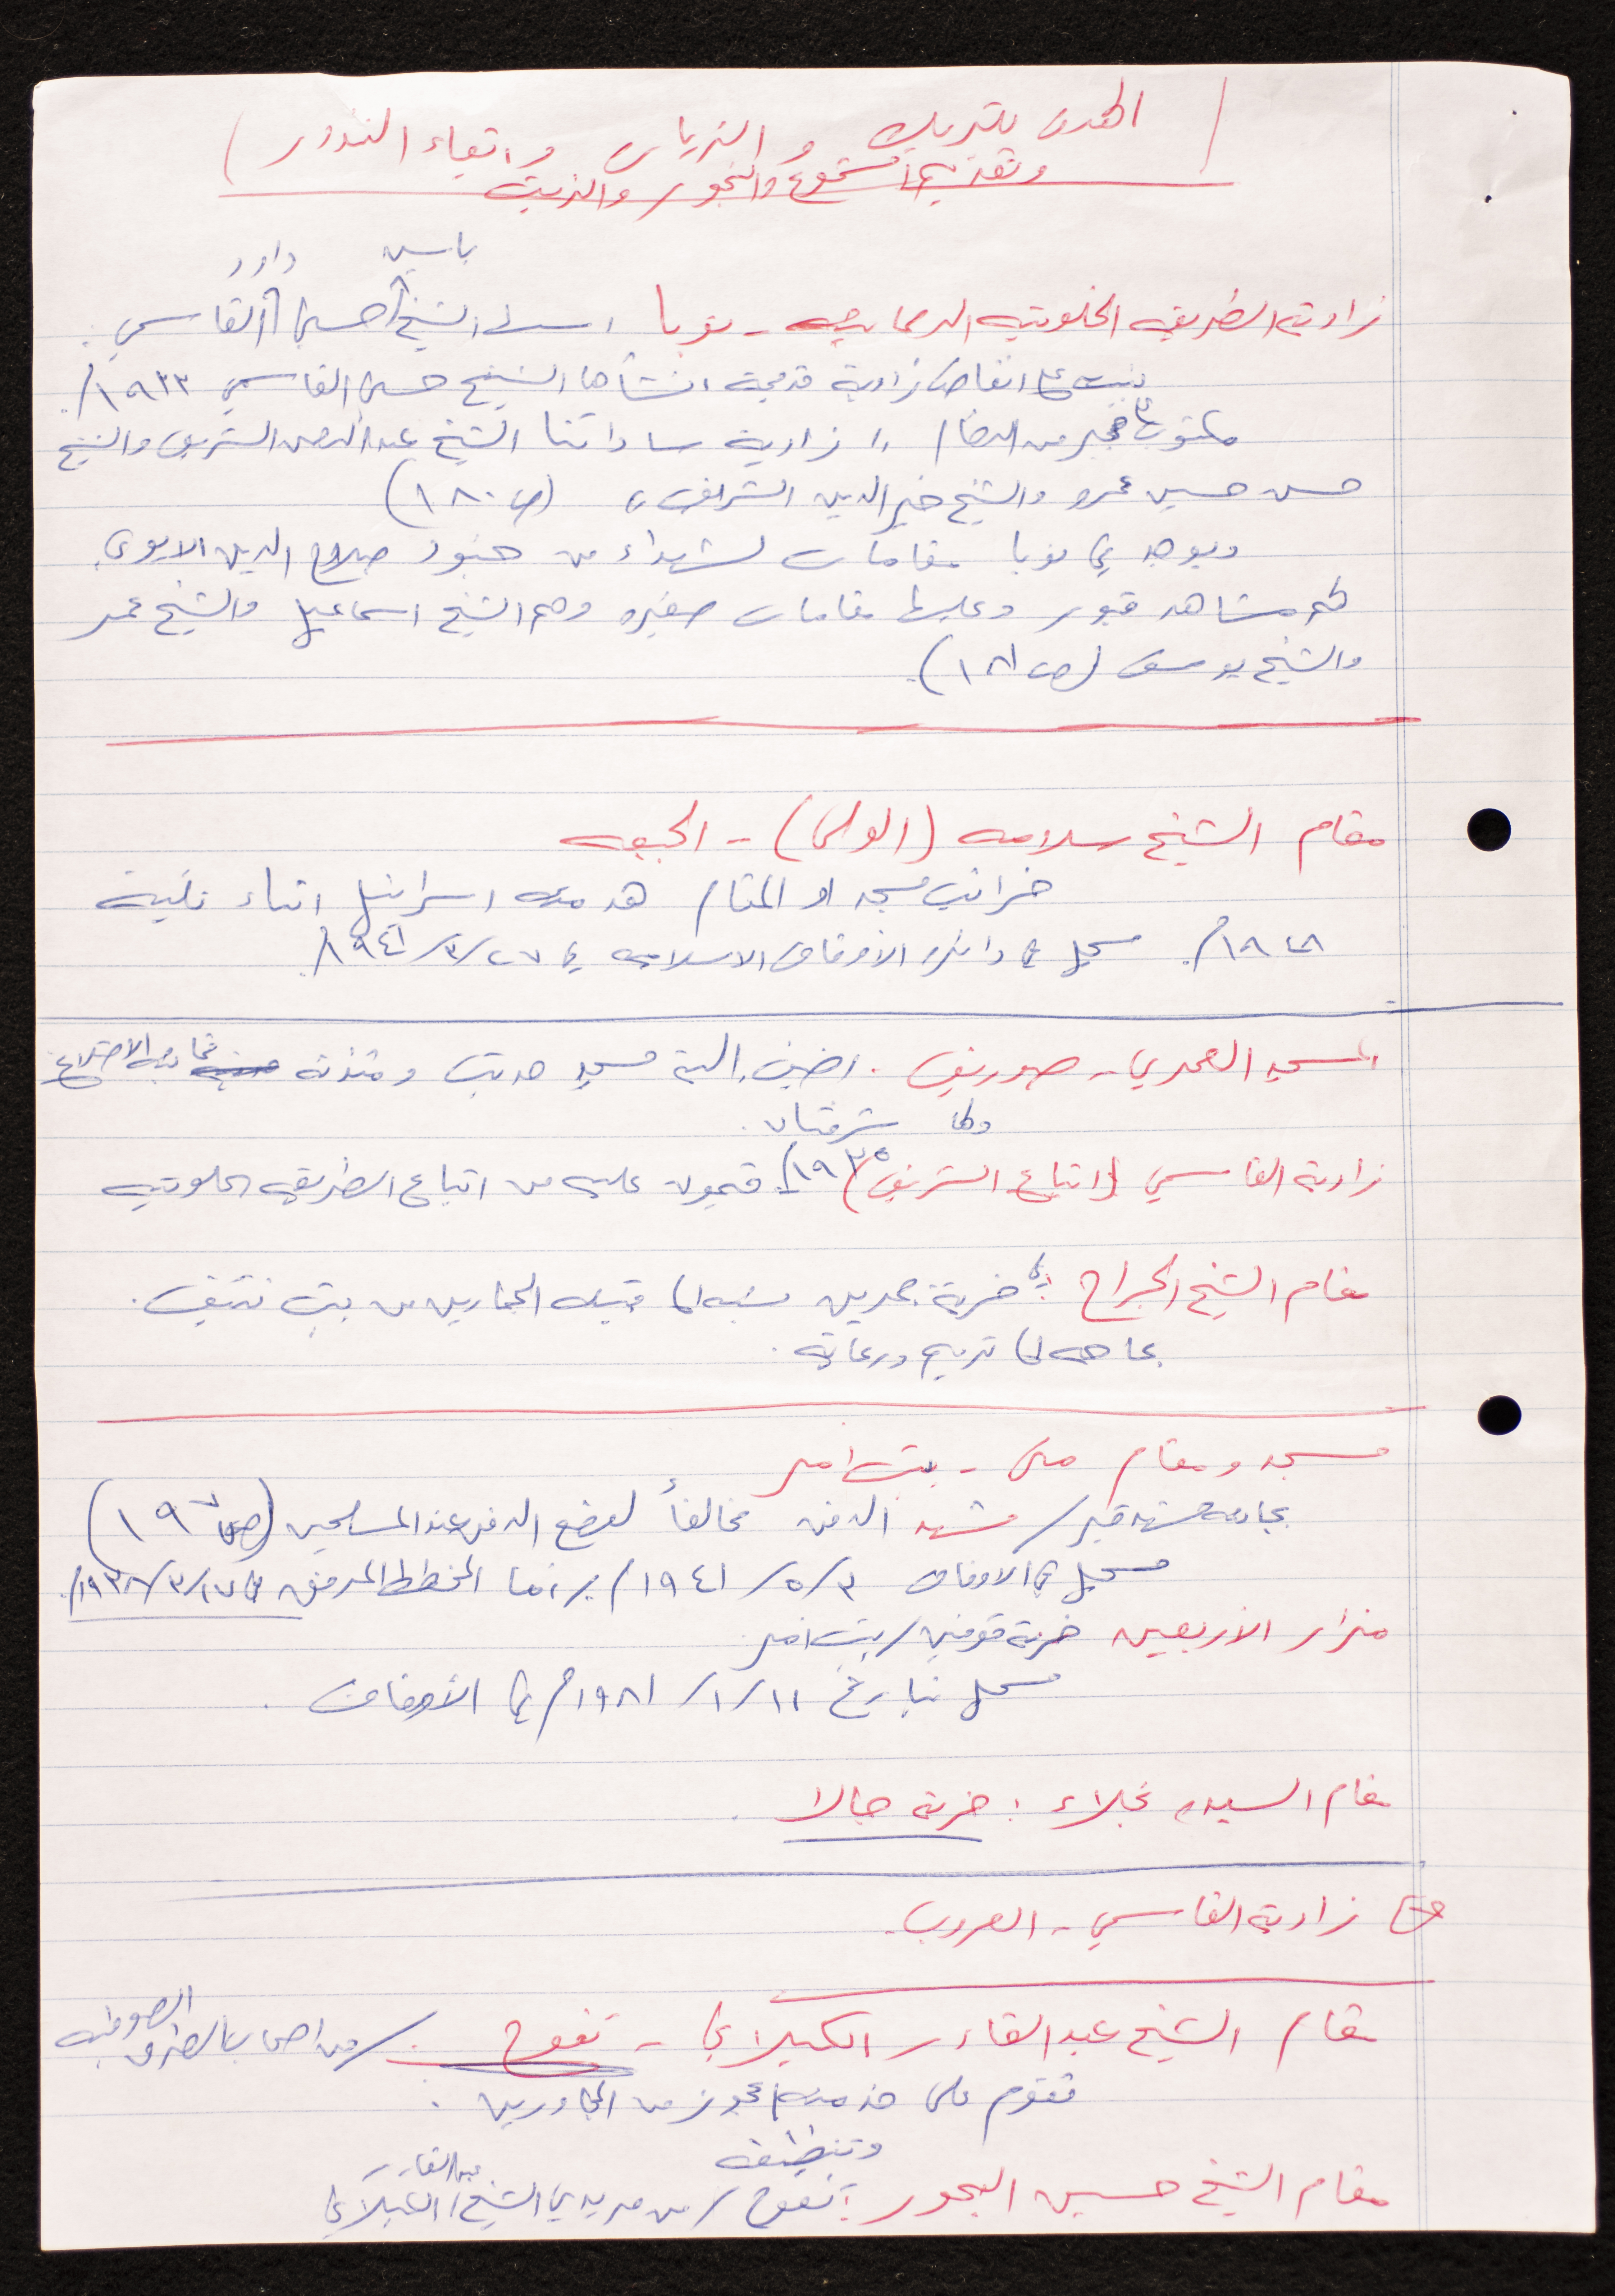 الهدف للتبريك و الزيارت و ايفاء النذور )
وتقديم الشموع والبخور والزيت
ياسين داود
زاوية الطريقه الخلوتيه الرحمانيه - نوبا الشيخ حسين القاسمي
بنيت على انقاض زاوية قديمة انشأها الشيخ حسين القاسمي ١٩٣٣م.
مكتوب على حجر من الرخام " زاوية ساداتنا الشيخ عبد الرحمن الشريف والشيخ
حسن حسين عمرو والشيخ خير الدين الشريف " (ص ١٨٠)
ويوجد في نوبا مقامات لشهداء من جنود صلاح الدين الايوبي
لهم مشاهد قبور وعليها مقامات صغيره وهم الشيخ اسماعيل والشيخ عمر
والشيخ يوسف (ص ١٨١).
مقام الشيخ سلامه (الولي) - الجبعه
خرائب مسجد او المقام هدمته اسرائيل اثناء نكبة
سجل في دائرة الأوقاف الاسلاميه في ٢٧/٣/١٩٤١م.
المسجد العمري - صوريف . اضيف اليه مسجد حديث ومئذنة ثمانية الاضلاع
ولها شرفتان .
زاوية القاسمي (اتباع الشريف) ١٩٣٥م. قيمون عليه من اتباع الطريقه الخلوتيه
مقام الشيخ الجراح : في خربة جمرين نسبه لها قبيلة الجمارين من بيت نتيف .
بحاجه لها ترميم ورعايه .
مسجد ومقام متى - بيت امر
بجانبه مشهد قبر / مشهد الدفن مخالفاً لوضع الدفن عند المسلمين (ص ١٩٧)
مسجل في الاوقاف ٣/٥/١٩٤١م بينما المخطط المرفق في ١٧/٣/١٩٣٨م.
مزار الأربعين خربة قوفين / بيت امر
مسجل بتاريخ ١١/١/١٩٨١م في الأوقاف .
مقام السيده نجلاء : خربة جالا
زاوية القاسمي - العروب .
مقام الشيخ عبد القادر الكيلاني - تفوح . / من اصحاب الطرق الصوفيه
تقوم على خدمته عجوز من المجاورين .
وتنظيفه
مقام الشيخ حسين البحور : تفوح / من مريدي الشيخ عبد القادر الكيلاني